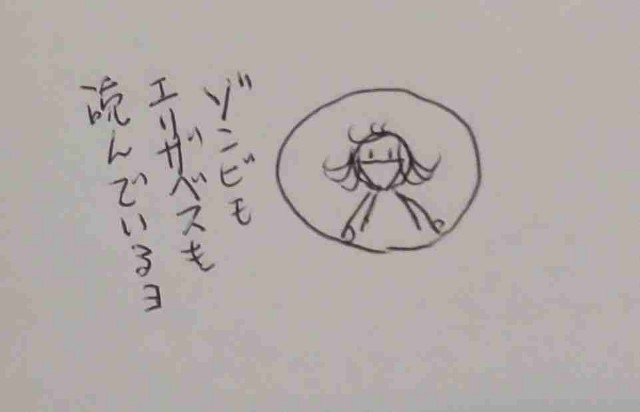 ゾンビも
エリザベスも
読んでいるヨ